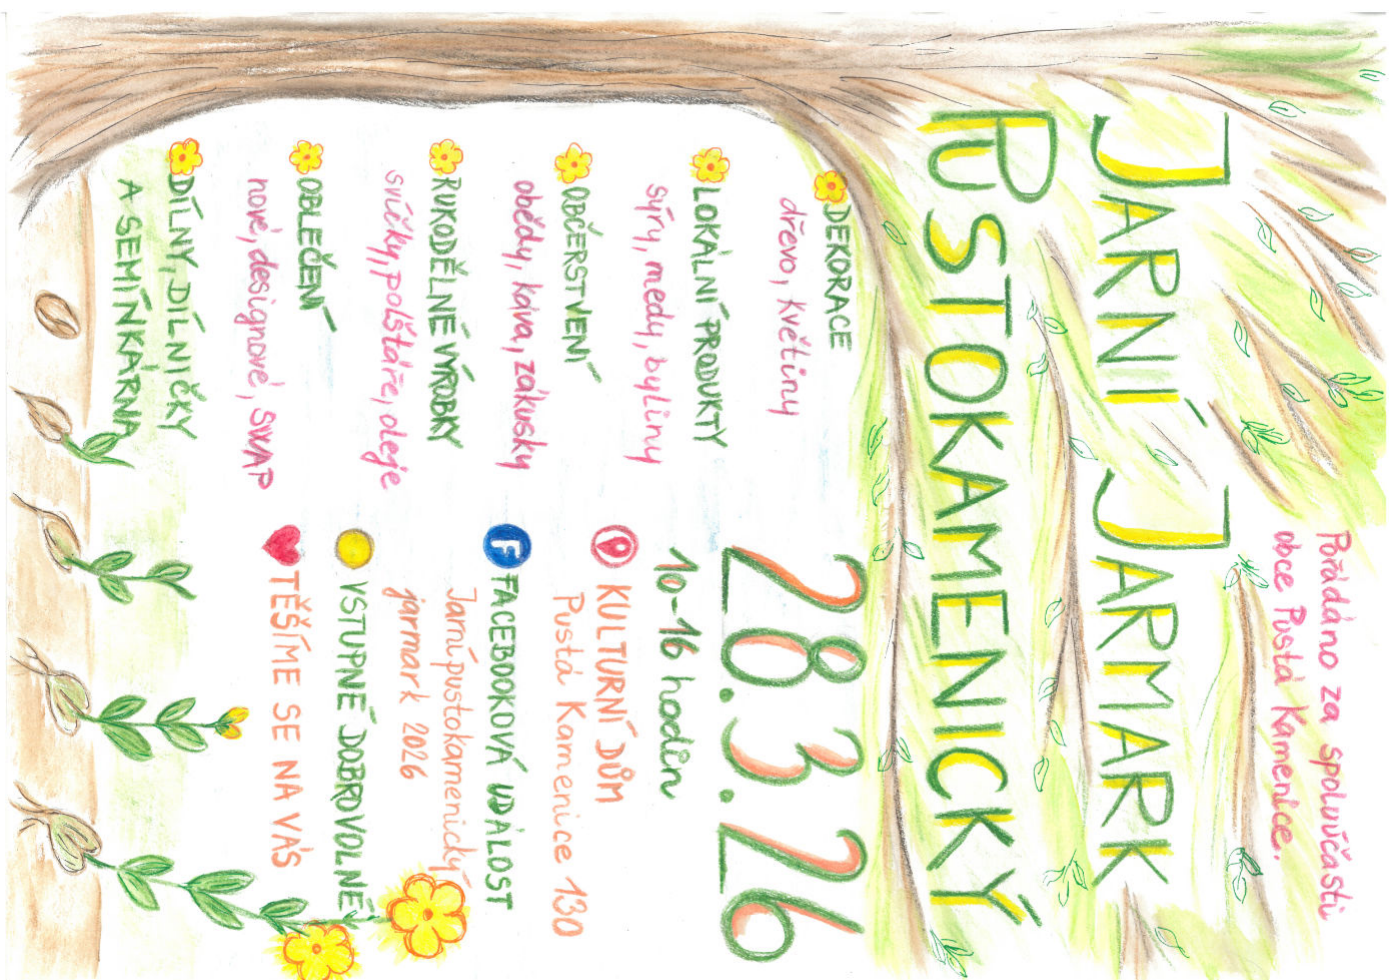 Pořádáno za spoluúčasti
obce Pustá Kamenice.
JARNÍ JARMARK
PUSTOKAMENICKÝ
DEKORACE
dřevo, květiny
LOKÁLNÍ PRODUKTY
sýry, medy, byliny
OBČERSTVENÍ
obědy, káva, zákusky
RUKODĚLNÉ VÝROBKY
svíčky, polštáře, oleje
OBLEČENÍ
nové, designové, SWAP
DÍLNY, DÍLNIČKY
A SEMÍNKÁRNA
28.3.26
10-16 hodin
KULTURNÍ DŮM
Pustá Kamenice 130
F FACEBOOKOVÁ UDÁLOST
Jarní pustokamenický
jarmark 2026
VSTUPNÉ DOBROVOLNÉ
TĚŠÍME SE NA VÁS